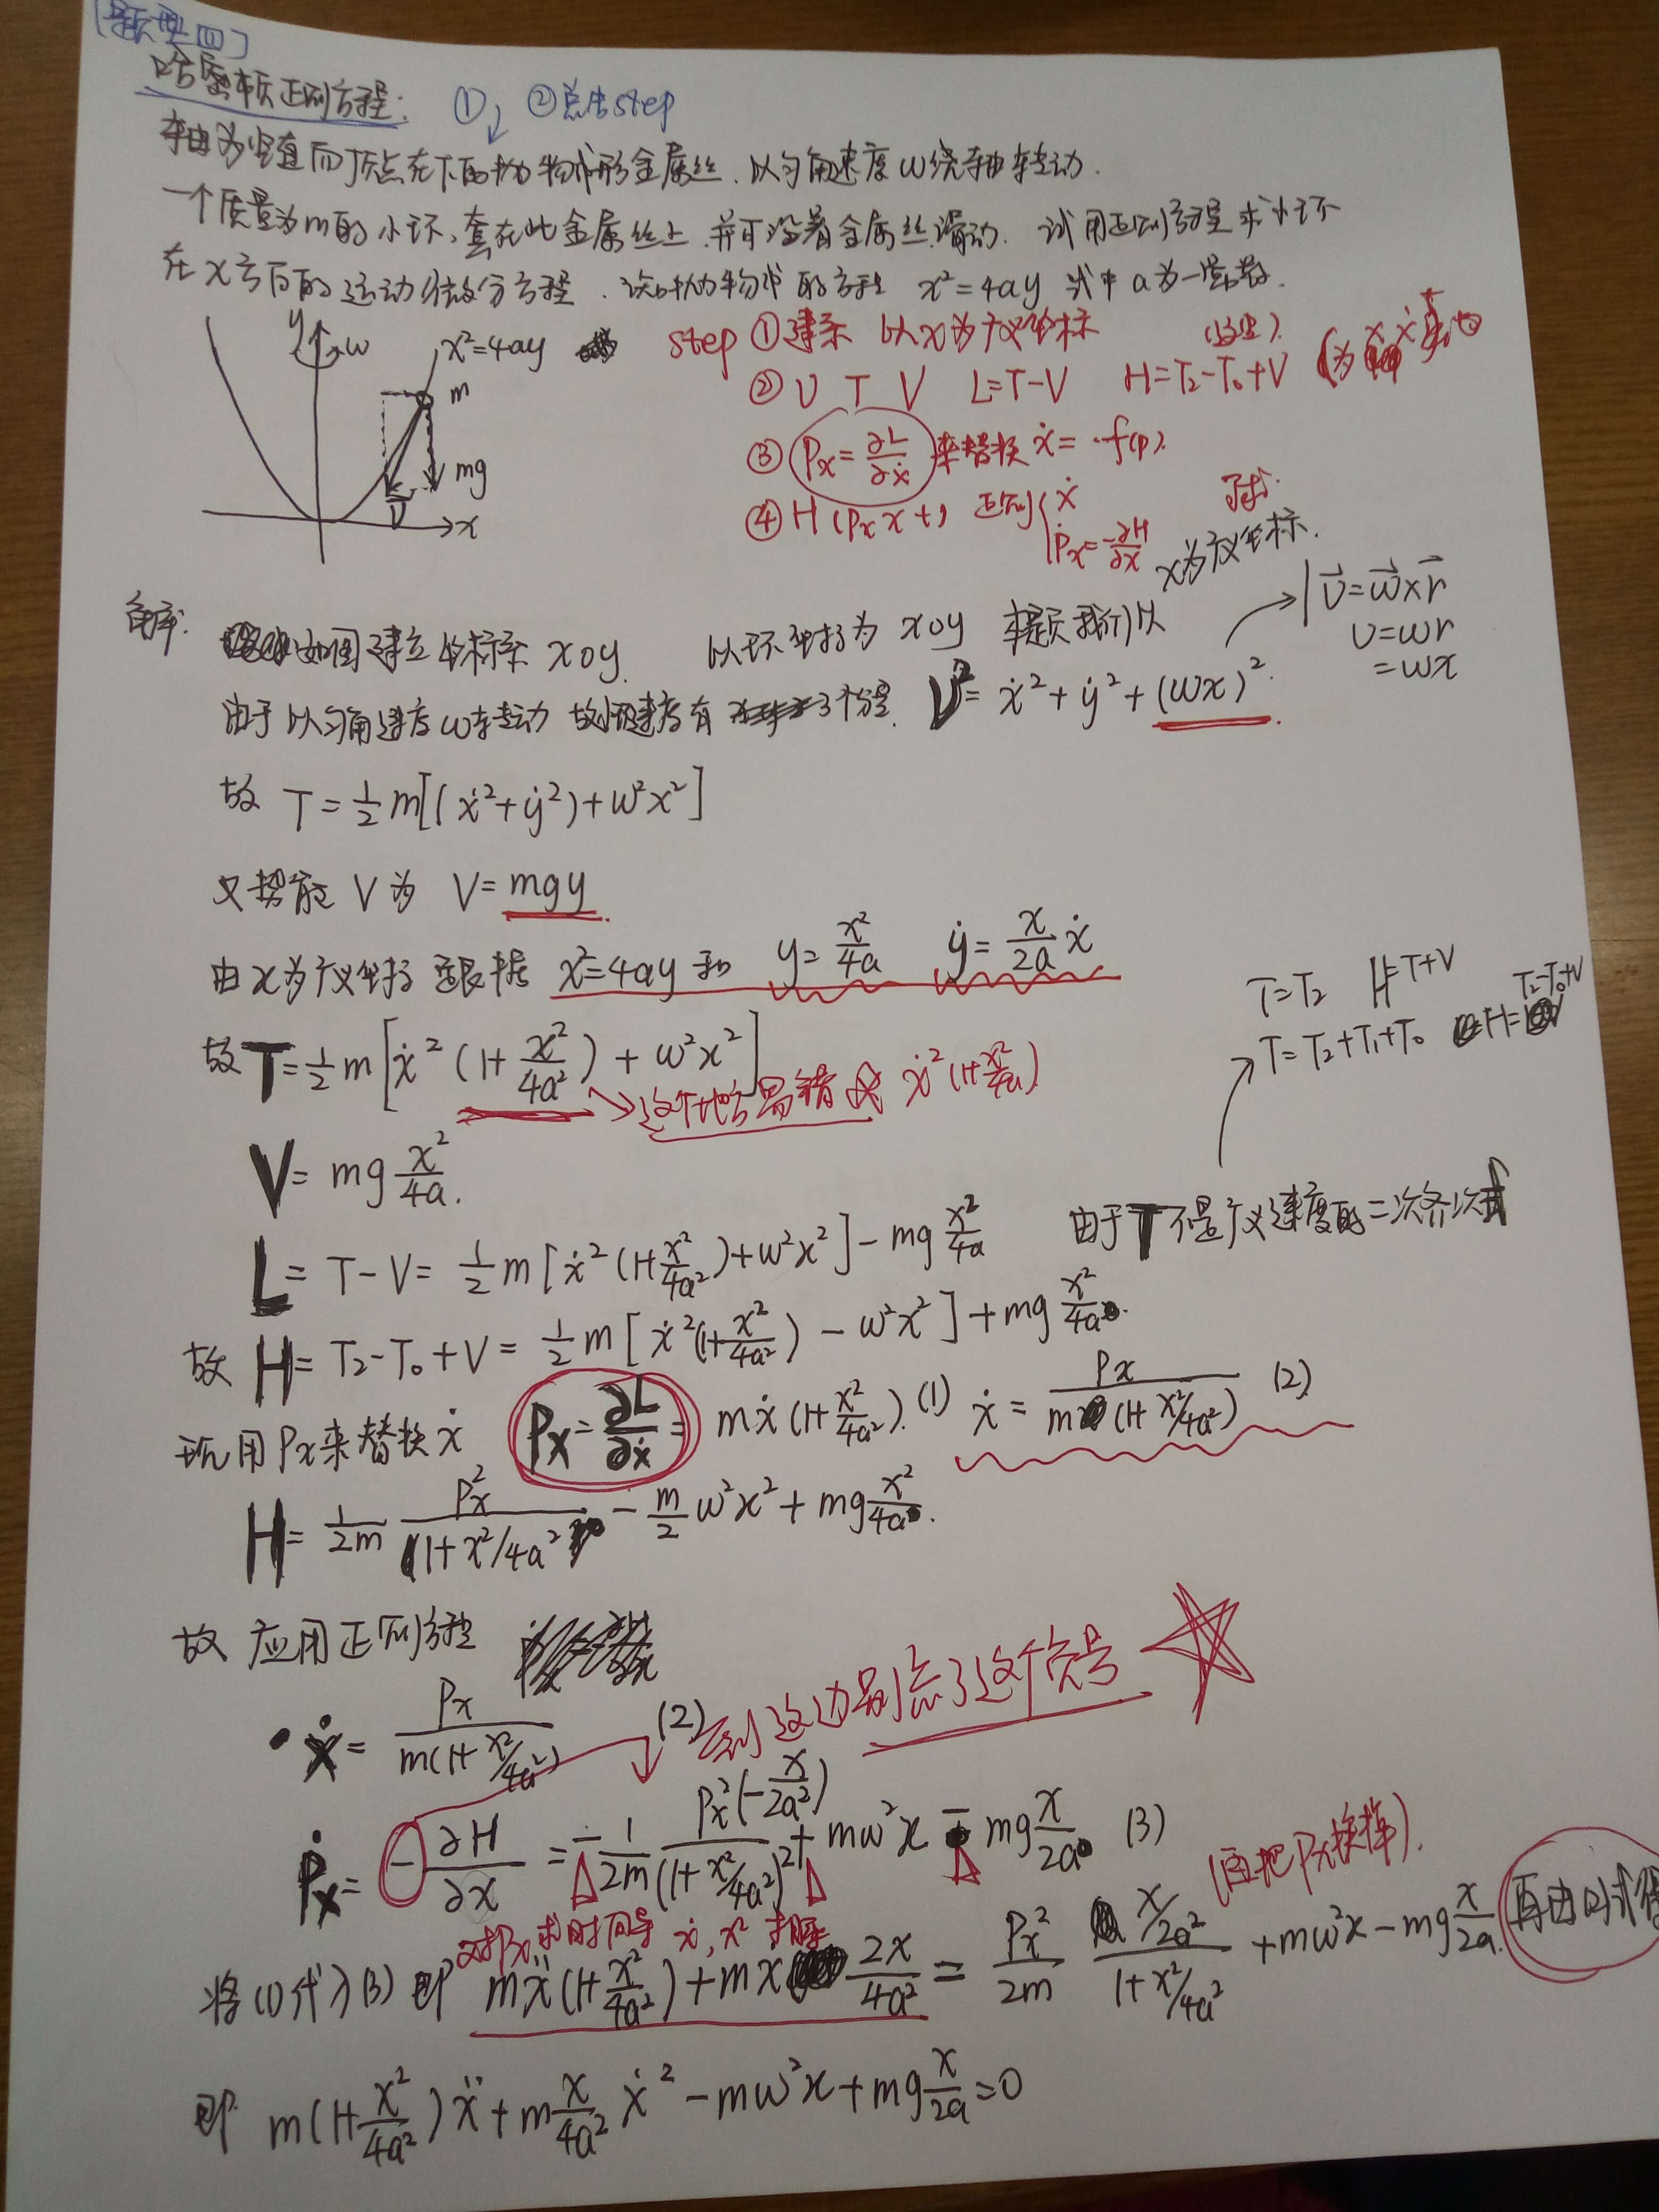 [题型四]
哈密顿正则方程: ① ②总结step
轴为竖直而顶点在下的抛物线形金属丝.以匀角速度ω绕轴转动.
一个质量为m的小环,套在此金属丝上.并可沿着金属丝滑动. 试用正则方程求小环
在x方向的运动微分方程.设抛物线的方程 x²=4ay 式中a为一常数.
y ω x²=4ay m mg v x
step ①建系 以x为广义坐标
② v T V L=T-V H=T₂-T₀+V
③ Px=∂L/∂ẋ 来替换 ẋ=f(p).
④ H(Px x t) 正则 { ẋ
Ṗx=-∂H/∂x
x为广义坐标.
解: 如图建立坐标系 xoy. 以环坐标为 xoy 本题我们以
v⃗=ω⃗×r⃗
v=ωr
=ωx
由于以匀角速度ω转动 故 速度有 3个分量. V²=ẋ²+ẏ²+(ωx)².
故 T=½m[(ẋ²+ẏ²)+ω²x²]
又势能V为 V=mgy
由x为广义坐标 根据 x²=4ay 和 y=x²/4a ẏ=(x/2a)ẋ
T=T₂ H=T+V
T=T₂+T₁+T₀ H=T₂-T₀+V
故 T=½m[ẋ²(1+x²/4a²)+ω²x²]
→这个地方易错 成 ẋ²(1+x²/4a)
V=mg x²/4a.
L=T-V=½m[ẋ²(1+x²/4a²)+ω²x²]-mg x²/4a 由于T不是广义速度的二次齐次式
故 H=T₂-T₀+V=½m[ẋ²(1+x²/4a²)-ω²x²]+mg x²/4a.
现用Px来替换ẋ Px=∂L/∂ẋ=mẋ(1+x²/4a²).(1) ẋ=Px/m(1+x²/4a²) (2)
H=1/2m Px²/(1+x²/4a²) - m/2 ω²x²+mg x²/4a.
故 应用正则方程
ẋ=Px/m(1+x²/4a²) (2) 到这边别忘了这个负号
Ṗx=-∂H/∂x=-1/2m Px²(-x/2a²)/(1+x²/4a²)²+mω²x-mg x/2a (3)
对Px求时间导 ẋ,x² 求导 (再把Px换掉).
将(1)代入(3) 即 mẍ(1+x²/4a²)+mẋ 2x/4a²=Px²/2m (x/2a²)/(1+x²/4a²)+mω²x-mg x/2a. 再由(2)式得
即 m(1+x²/4a²)ẍ+m x/4a² ẋ²-mω²x+mg x/2a=0